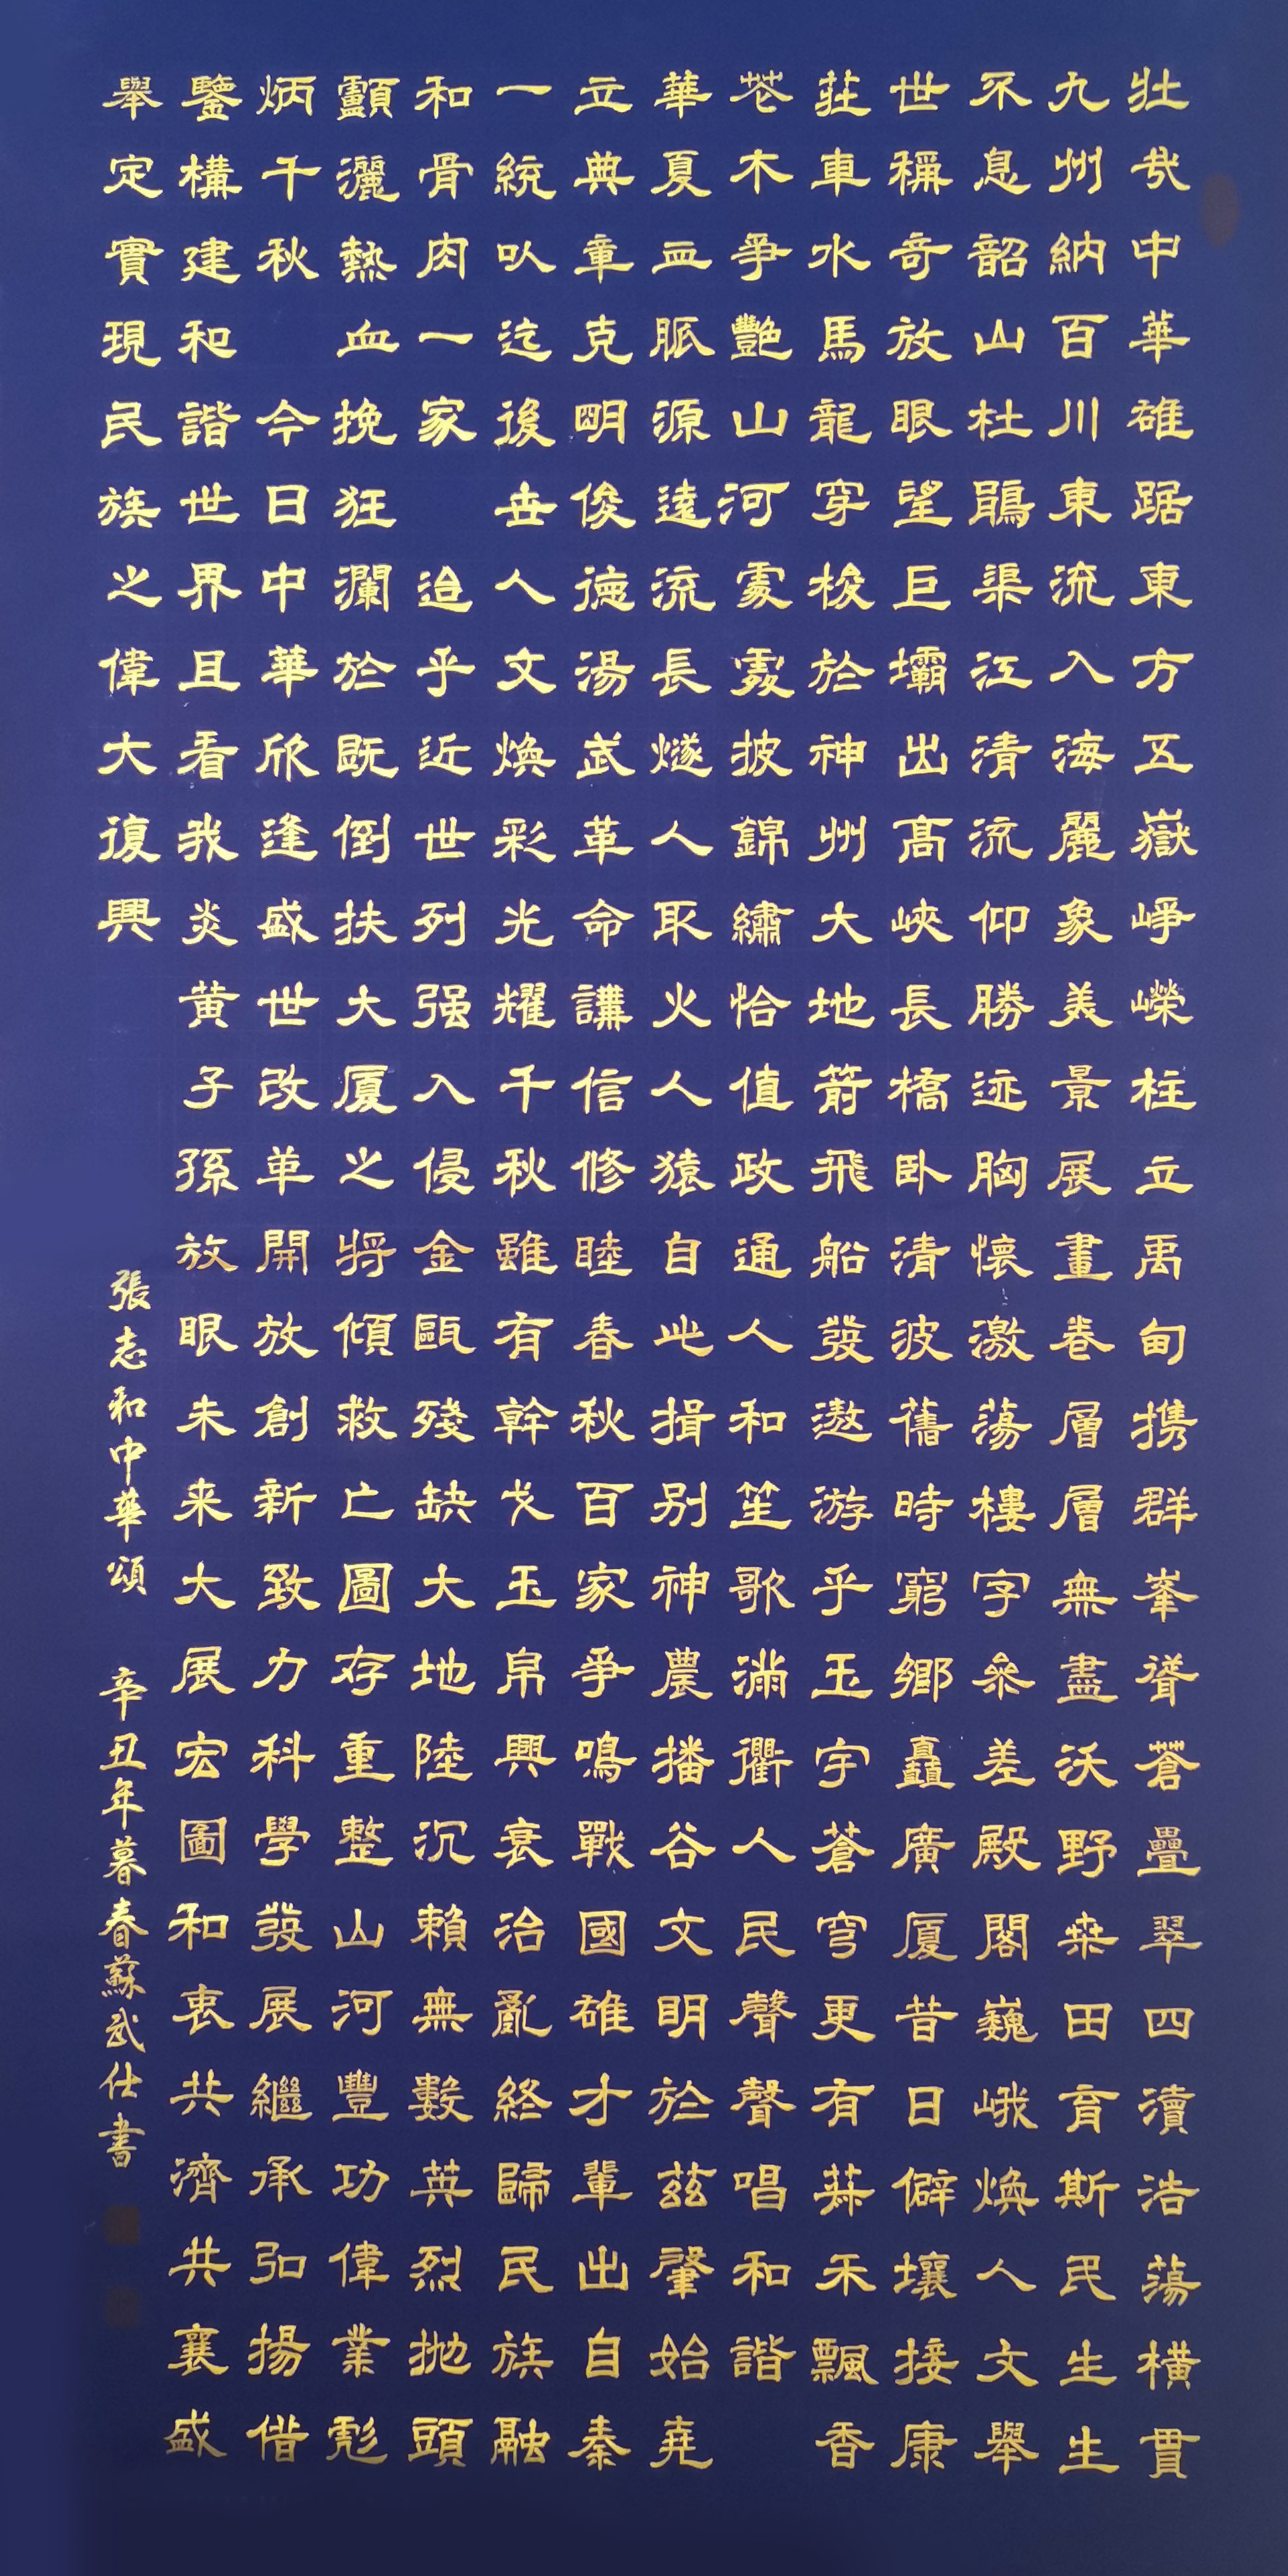 壯哉中華雄踞東方五嶽崢嶸柱立禹甸攜群峯聳蒼疊翠四瀆浩蕩橫貫
九州納百川東流入海麗象美景展畫卷層層無盡沃野桑田育斯民生生
不息韶山杜鵑渠江清流仰勝迹胸懷激蕩樓字參差殿閣巍峨煥人文舉
世稱奇放眼望巨壩出高峽長橋卧清波舊時窮鄉矗廣厦昔日僻壤接康
莊車水馬龍穿梭於神州大地箭飛船發遨游乎玉宇蒼穹更有菻禾飄香
花木爭艷山河處處披錦繡恰值政通人和笙歌滿衢人民聲聲唱和諧
華夏血脈源遠流長燧人取火人猿自此揖别神農播谷文明於茲肇始堯
立典章克明俊德湯武革命講信修睦春秋百家爭鳴戰國雄才輩出自秦
一統以迄後世人文煥彩光耀千秋雖有幹戈玉帛興衰治亂終歸民族融
和骨肉一家 迨乎近世列强入侵金甌殘缺大地陸沉賴無數英烈拋頭
顱灑熱血挽狂瀾於既倒扶大厦之將傾救亡圖存重整山河豐功偉業彪
炳千秋 今日中華欣逢盛世改革開放創新致力科學發展繼承弘揚借
鑒構建和諧世界且看我炎黃子孫放眼未来大展宏圖和衷共濟共襄盛
舉定實現民族之偉大復興
張志和中華頌 辛丑年暮春蘇武仕書